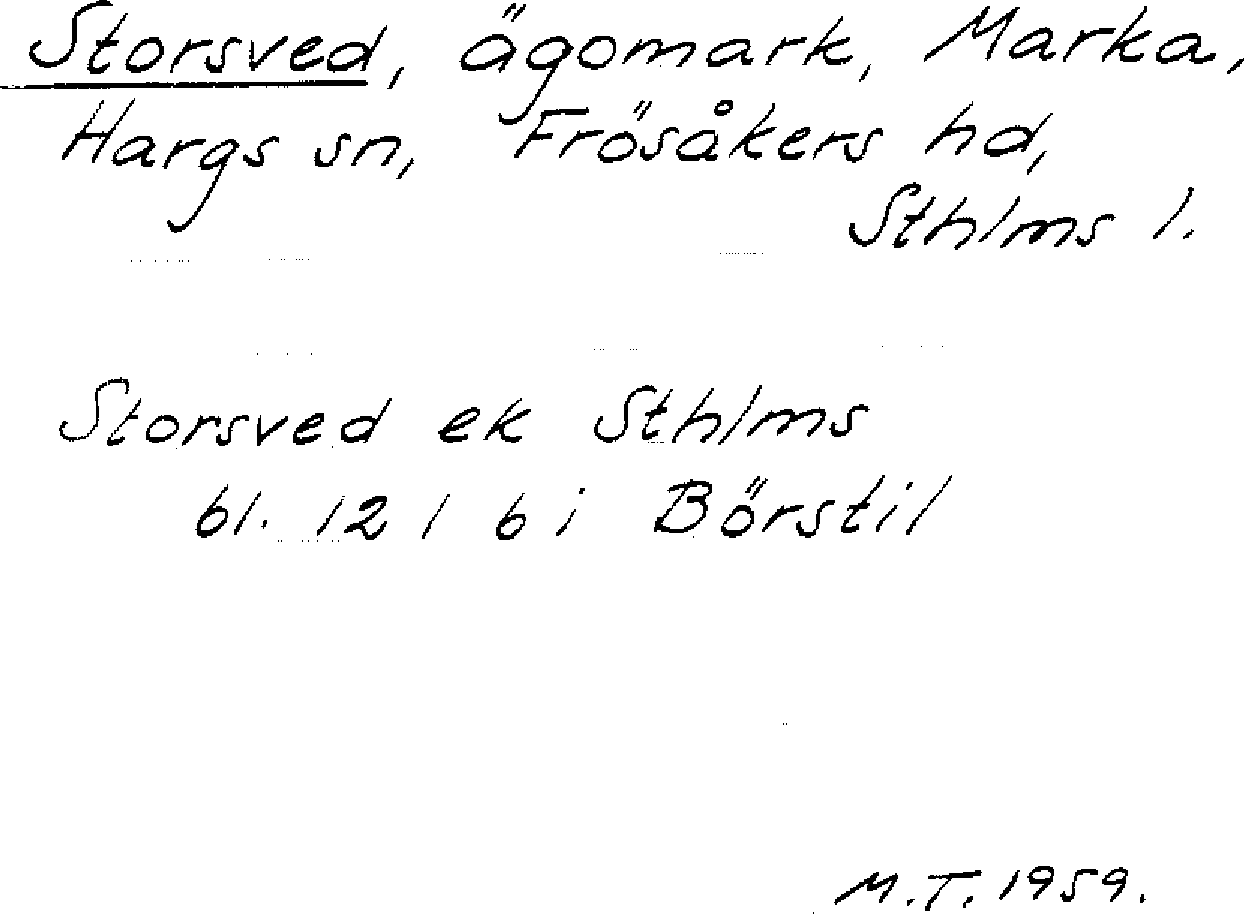 Storsved, ägomark, Marka,
Hargs sn, Frösåkers hd,
Sthlms l.
Storsved ek Sthlms
bl. 12 1 6 i Börstil
M.T. 1959.